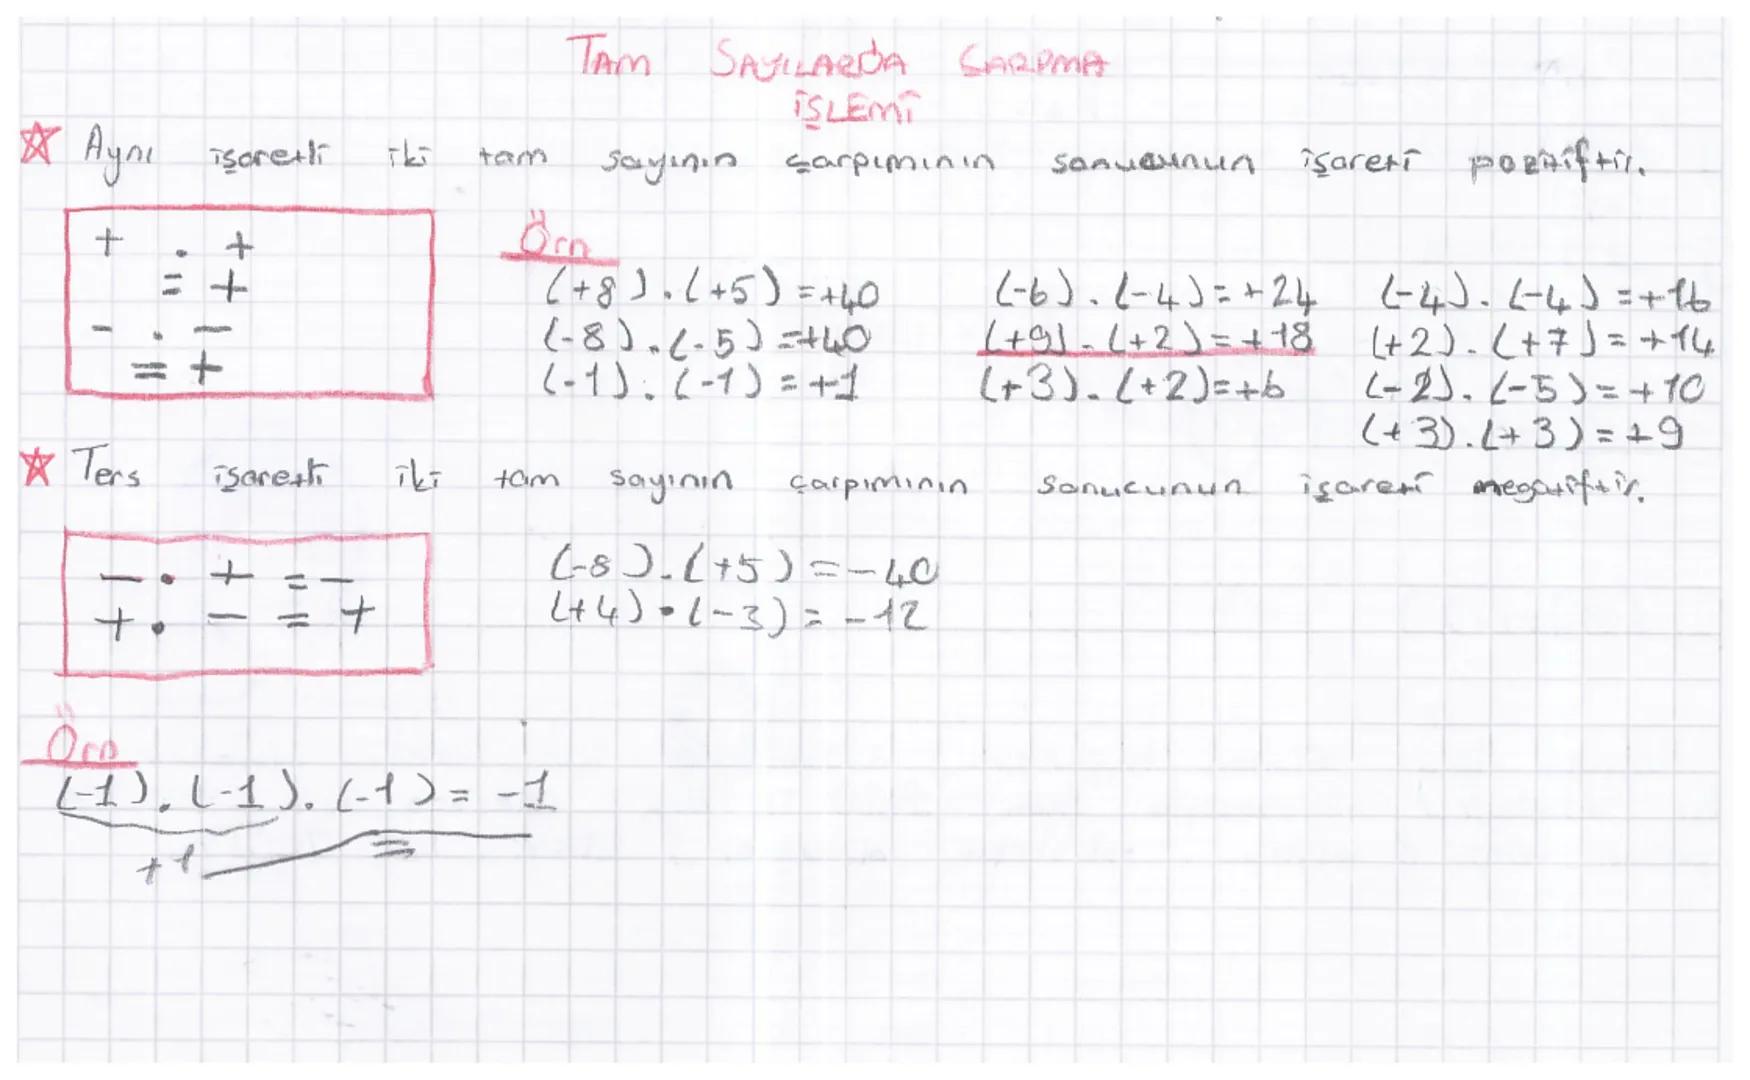 TAM SAYILARDA ÇARPMA
İŞLEMİ
Aynı işaretli iki tam sayının çarpımının sonucunun işareti pozitiftir.
+ . +
= +
- . -
= +
Örn
(+8).(+5)=+40
(-8).(-5)=+40
(-1).(-1)=+1
(-6).(-4)=+24
(+9).(+2)=+18
(+3).(+2)=+6
(-4).(-4)=+16
(+2).(+7)=+14
(-2).(-5)=+10
(+3).(+3)=+9
Ters işaretli iki tam sayının çarpımının sonucunun işareti negatiftir.
- . + = -
+ . - = +
(-8).(+5)=-40
(+4).(-3)=-12
Örn
(-1).(-1).(-1)=-1
+1 =